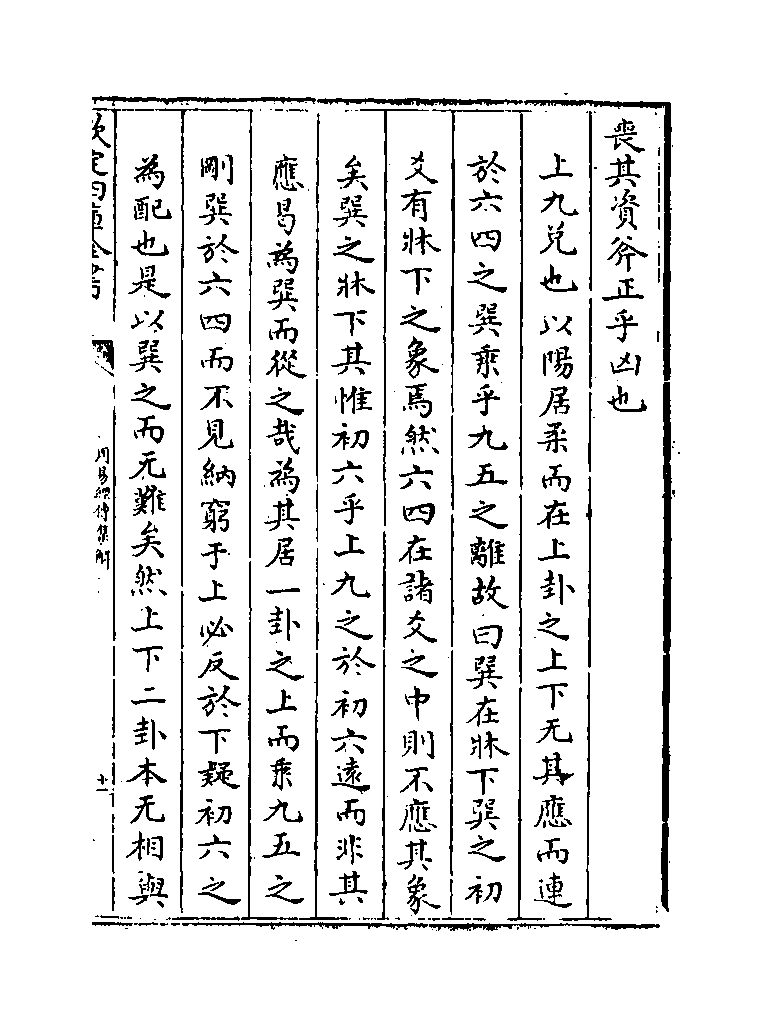 喪其資斧正乎凶也
上九兌也以陽居柔而在上卦之上下无其應而連
於六四之巽乘乎九五之離故曰巽在牀下巽之初
爻有牀下之象焉然六四在諸爻之中則不應其象
矣巽之牀下其惟初六乎上九之於初六遠而非其
應曷為巽而從之哉為其居一卦之上而乘九五之
剛巽於六四而不見納窮于上必反於下疑初六之
為配也是以巽之而无難矣然上下二卦本无相與
欽定四庫全書
周易經傳集解
十一